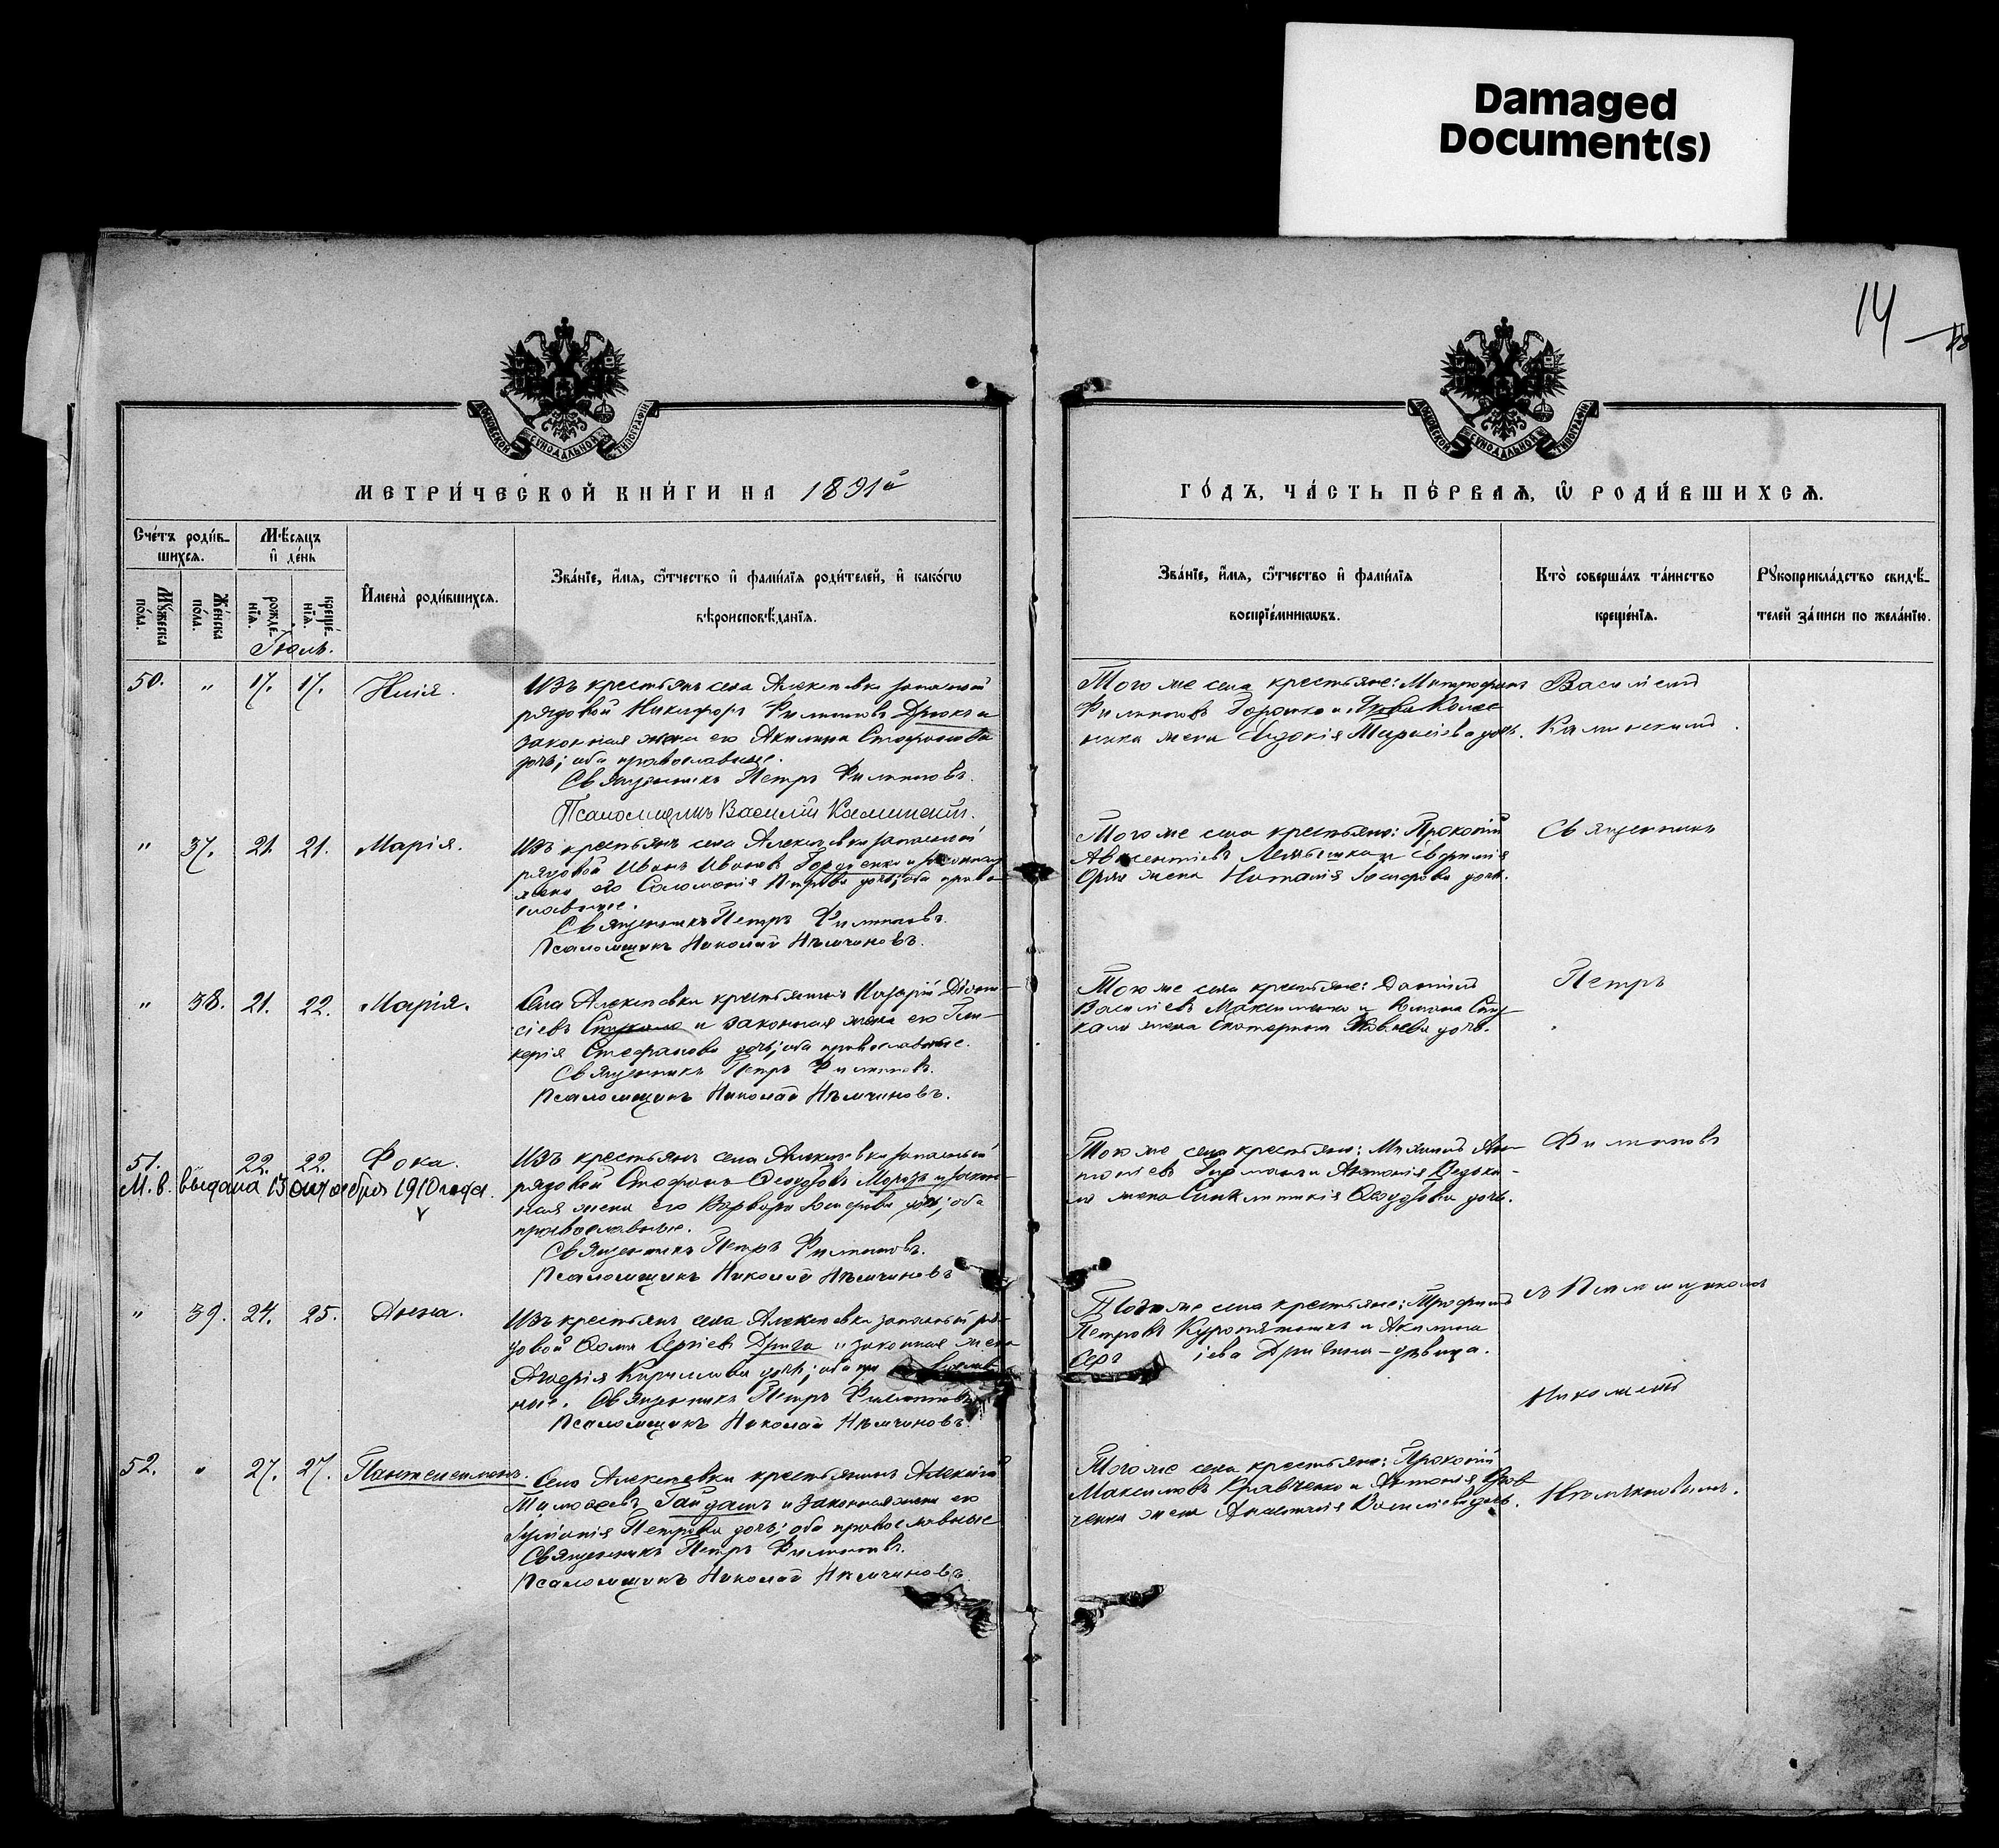 Damaged
Document(s)
14
МОСКОВСКОЙ СѴНОДАЛЬНОЙ ТИПОГРАФІИ
МОСКОВСКОЙ СѴНОДАЛЬНОЙ ТИПОГРАФІИ
МЕТРИ́ЧЕСКОЙ КНИ́ГИ НА 1891й
ГО́ДЪ, ЧА́СТЬ ПЕ́РВАѦ, Ѽ РОДИ́ВШИХСѦ.
Сче́тъ роди́в-
шихсѧ.
Мꙋ́жеска по́ла.
Же́нска по́ла.
Мѣ́сѧцъ
и҆ де́нь
рожде́-
нїѧ.
креще́-
нїѧ.
Іюль.
И҆мена̀ роди́вшихсѧ.
Зва́нїе, и҆́мѧ, ѻ҆́тчество и҆ фами́лїѧ роди́телей, и҆ како́гѡ
вѣроисповѣ́данїѧ.
Зва́нїе, и҆́мѧ, ѻ҆́тчество и҆ фами́лїѧ
воспрїе́мникѡвъ.
Кто̀ соверша́лъ та́инство
креще́нїѧ.
Рꙋкоприкла́дство свидѣ́-
телей за́писи по жела́нїю.
50. " 17. 17.
Изъ крестьянъ села Алексеевки запасный
рядовой Никифоръ Филиповъ Дрюкъ и
законная жена его Акилина Стефанова
дочь; оба православные.
Священникъ Петръ Филиповъ.
Псаломщикъ Василій Калинскій.
Того же села крестьяне: Митрофанъ
Филиповъ
жена Евдокія дочь.
Василій
" 37. 21. 21. Марія.
Изъ крестьянъ села Алексеевки запасный
рядовой Иванъ Ивановъ и законная
жена его Соломонія Петрова дочь; оба право-
славные.
Священникъ Петръ Филиповъ.
Псаломщикъ Николай Нѣмчиновъ.
Того же села крестьяне: Прокопій
Авксентіевъ и
жена Наталія дочь.
Священникъ
" 38. 21. 22. Марія.
Села Алексеевки крестьянинъ Назарій Діони-
сіевъ Стукало и законная жена его Гли-
керія Стефанова дочь; оба православные.
Священникъ Петръ Филиповъ.
Псаломщикъ Николай Нѣмчиновъ.
Того же села крестьяне: Даніилъ
Васильевъ и Сту-
кало жена Екатерина дочь.
Петръ
51. 22. 22. Фока.
М. в. выдана 13 октября 1910 года.
Изъ крестьянъ села Алексеевки запасный
рядовой Стефанъ Ѳеодоровъ Морозъ и закон-
ная жена его Варвара дочь; оба
православные.
Священникъ Петръ Филиповъ.
Псаломщикъ Николай Нѣмчиновъ
Того же села крестьяне: Михаилъ Ан-
тоніевъ и
жена Ѳеодорова дочь.
Филиповъ
" 39. 24. 25. Анна.
Изъ крестьянъ села Алексеевки запасный ря-
довой Ѳома Сергіевъ Дрига и законная жена
Кирилова дочь; оба православ-
ные. Священникъ Петръ Филиповъ
Псаломщикъ Николай Нѣмчиновъ.
Того же села крестьяне: Трофимъ
Петровъ и Акилина
Сергіева дѣвица.
съ Псаломщикомъ
Николаемъ
52. " 27. 27. Пантелеимонъ.
Села Алексеевки крестьянинъ Алексій
Гайдашъ и законная жена его
Іуліанія Петрова дочь; оба православные
Священникъ Петръ Филиповъ.
Псаломщикъ Николай Нѣмчиновъ.
Того же села крестьяне: Прокопій
Максимовъ Кравченко и Антонія Крав-
ченка жена Анастасія Васильева дочь.